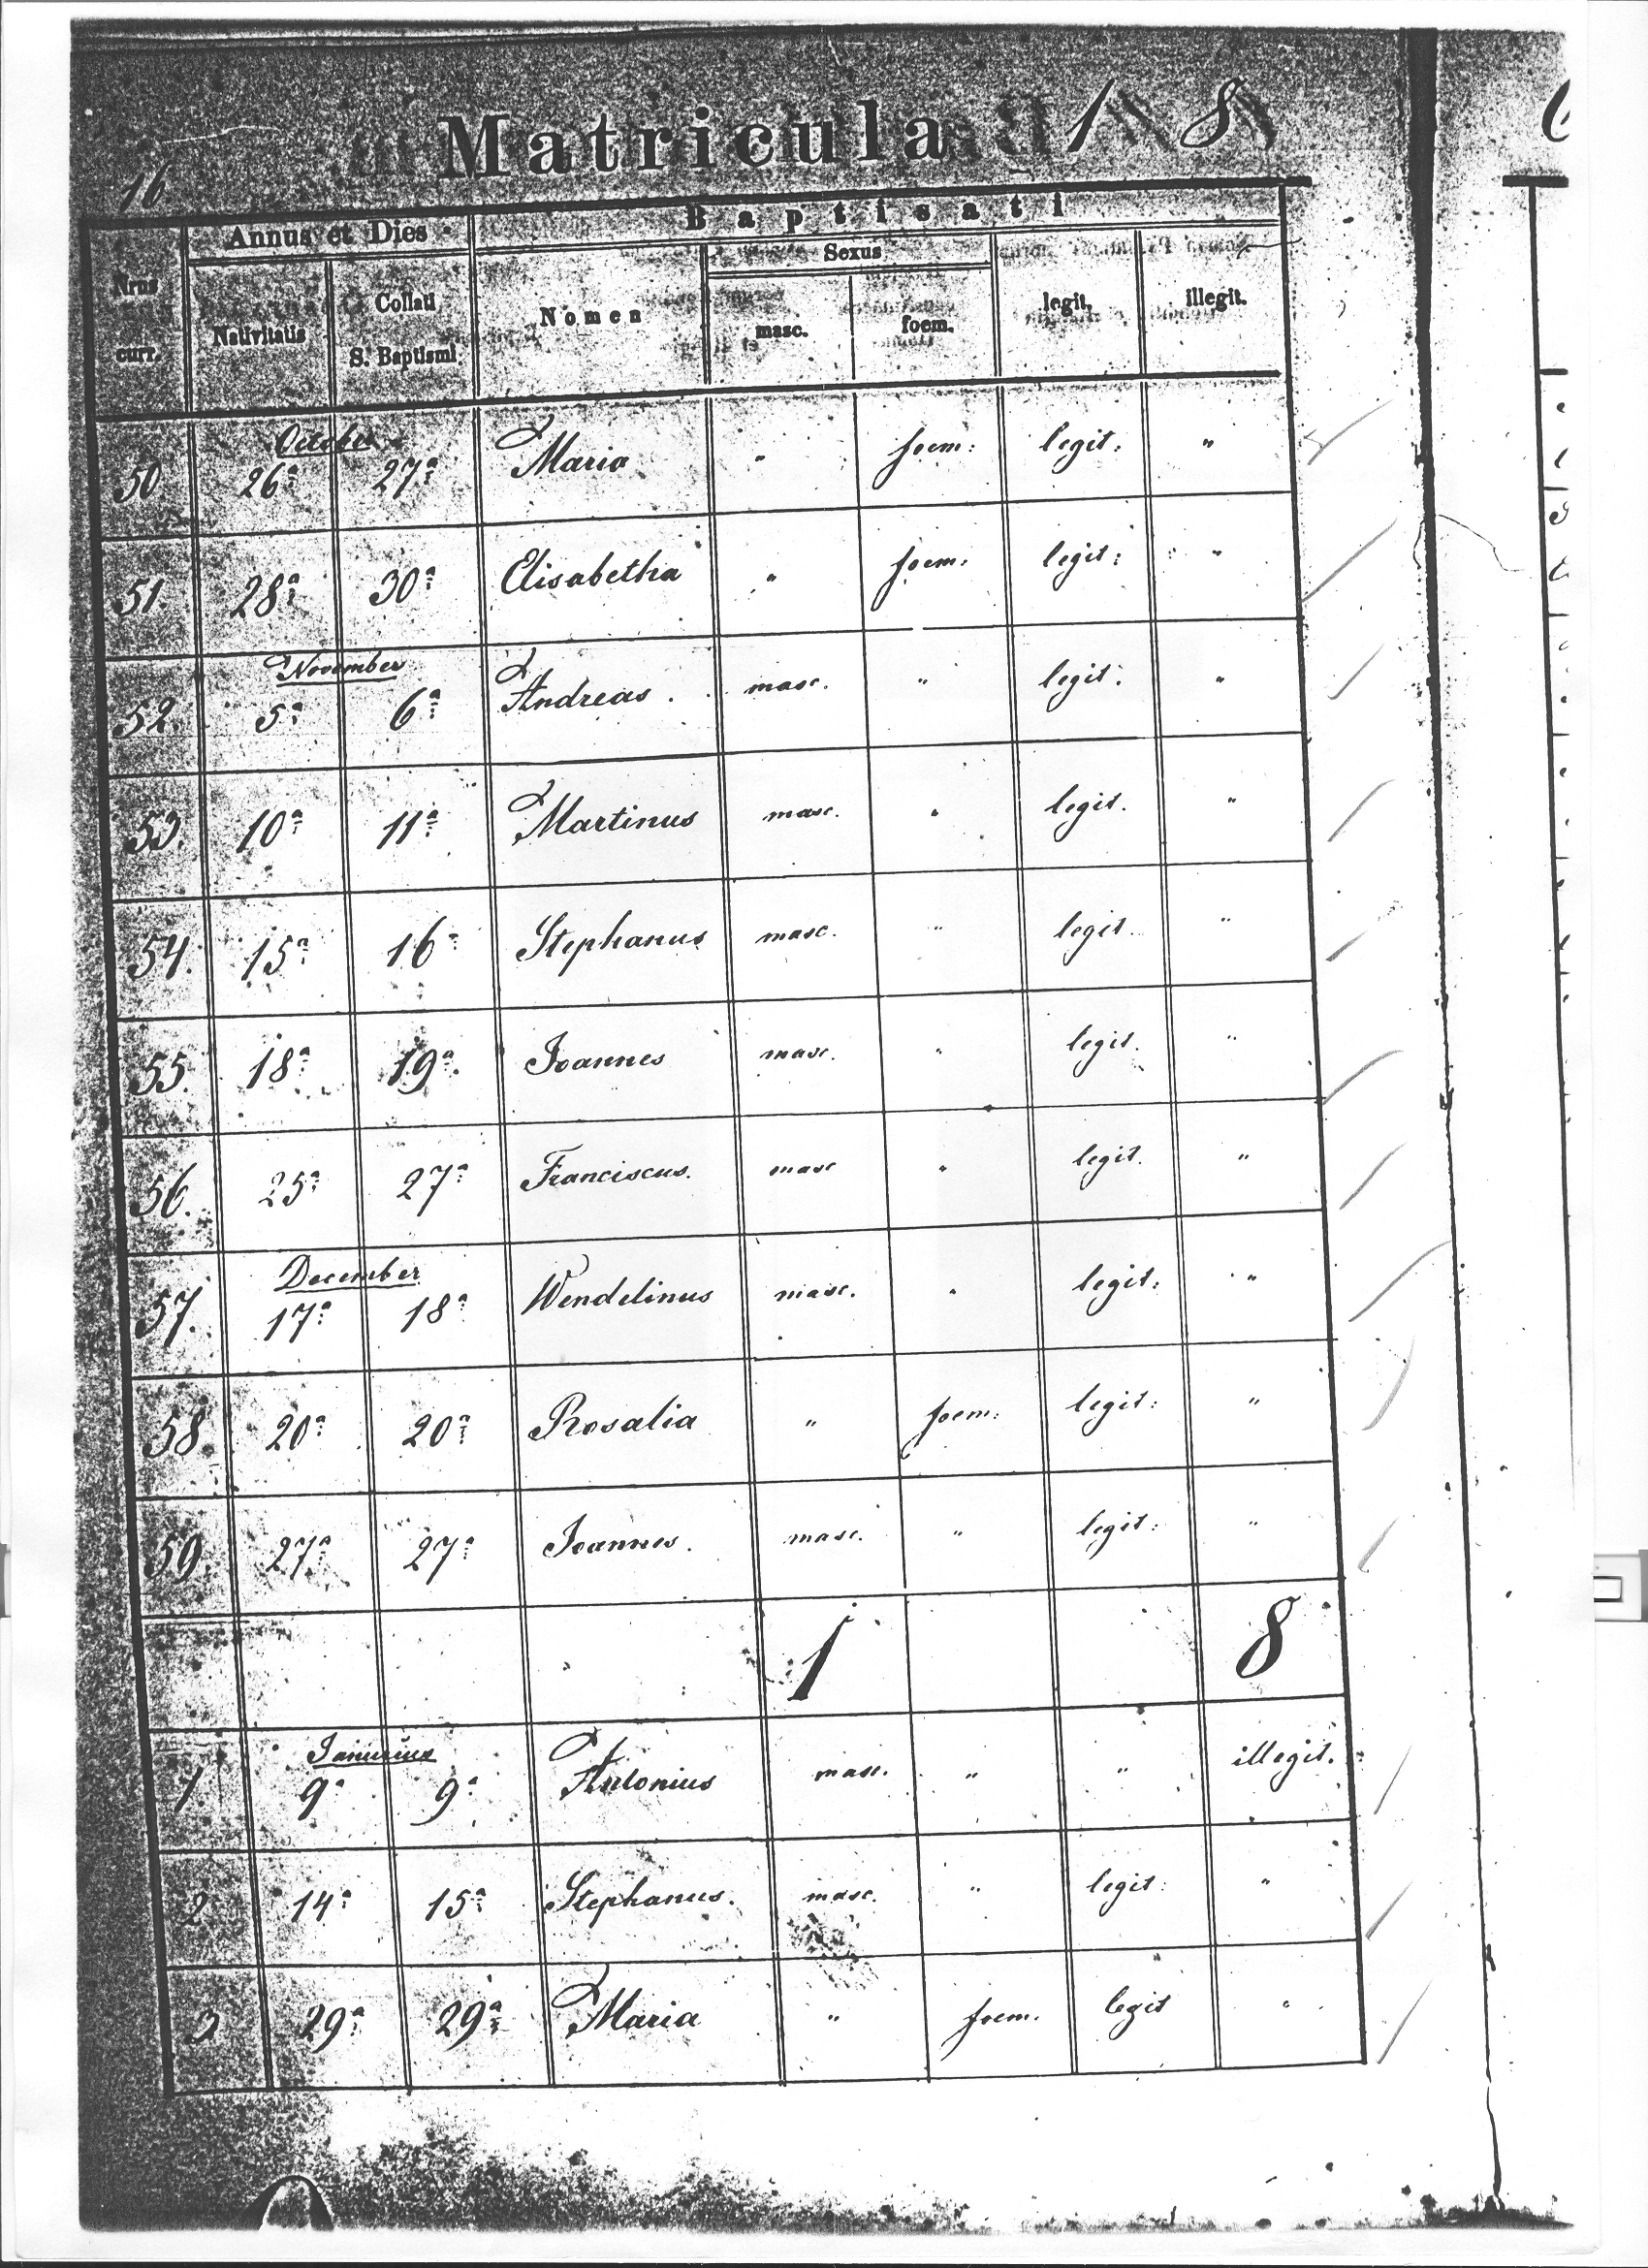 16 Matricula 1 8
Baptisati
Annus et Dies
Sexus
Nrus curr. Nativitatis Collati S. Baptismi Nomen masc. foem. legit. illegit.
October
50 26a 27a Maria " foem: legit: "
51. 28a 30a Elisabetha " foem: legit: "
November
52. 5a 6a Andreas. masc. " legit: "
53. 10a 11a Martinus masc. " legit. "
54. 15a 16a Stephanus masc. " legit. "
55. 18a 19a Ioannes masc. " legit. "
56. 25a 27a Franciscus. masc " legit. "
December
57. 17a 18a Wendelinus masc. " legit: "
58. 20a 20a Rosalia " foem: legit: "
59. 27a 27a Ioannes. masc. " legit: "
1 8
Janurius
1 9a 9a Antonius masc. " " illegit.
2 14a 15a Stephanus. masc. " legit: "
3 29a 29a Maria " foem. legit "